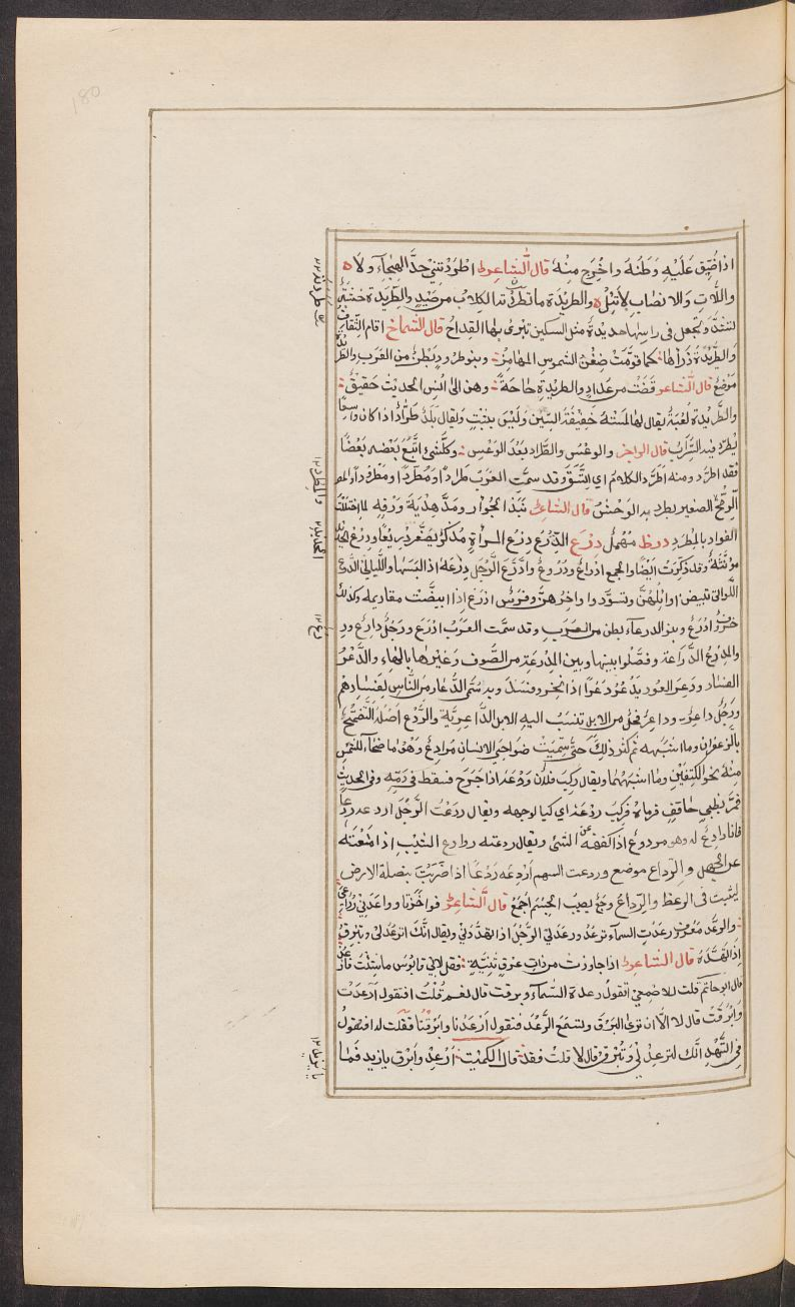 180
اذا ضُيِّق عَلَيْهِ وَطَنَهُ واُخْرِجَ مِنْهُ قال الشاعر اطرَدْتني حذَّ الهجآء ولا
واللّاتِ وَالانصَاب لاتئِلُ والطريْدَة ما تطرُدُه الكِلابُ من صَيدٍ والطريدة خشبة
وتجعل فى راسِها حديدة مثل السكين تبرى بها القِداحُ قال الشماخ اقام الثقاف
وَالطَّرِيْدَةُ ذُرْأها كما قوّمَتْ ضِغْن الشَّموس المهامِز وبنو طرود بَطن من العَرَب
مَوضعٌ قال الشاعر قَضَتْ من عَدادٍ والطريْدَةِ حاجَة وهن الى انس الحديث حَقيق
والطَّريدة لُعْبَةٌ يقال لها المَسّة خَفيفَة السّين وليْسَ بثبتٍ ويقال بلَدٌ طرّادٌ اذا كان واسعا
يُطّرد فيه السَّراب قال الراجز والوعْسِ والطرّاد بَعْدَ الوَعْسِ وكل شئ اتَّبَعَ بَعْضه بَعْضًا
فقد اطرَد ومنه اطّرَدَ الكلام اى اتّسَق وقد سمّت العَرَب طرّادًا ومُطرّدًا ومطرودًا والمِطرد
الرُّمح الصغير يطرد به الوَحشُ قال الشاعر نَبَذ الجُؤار
الفواد بالمِطرَد درظ مُهْمَل درع الدِّرْعُ دِرْع المرأةِ مُذكرٌ يصغّر دُرَيعًا ودِرْعُ الحديد
مؤنثة وقد ذكّرت ايضًا والجمع ادراع ودُرُوع وادَّرَعَ الرَّجُل دِرْعَه اذا لبسَها والليالى الدُّرع
اللّواتى تبيض اوائِلُهُنَّ وتسوّد اواخِرُهنَّ وفرَس ادْرَع اذا ابيضَّت مقاديمه وكذلك
خروف ادْرَعُ وبنو الدرعآء بطن من العَرَب وقد سمّت العرَبُ ادْرَع ورَجُل دارع
والمِدْرَعُ الدَّرّاعة وفَصّلوا بينها وبين المِدْرَعة من الصُّوف وَغيرها بالهاء والدَّعَرُ
الفساد ودَعِرَ العُود يَدْعَرُ دَعَرًا اذا نخِر وفسَدَ وبه سُمّى الدُّعّار من النّاس لِفَسادِهم
ورَجُل داعِر وداعِر فحل من الابل تنسَبُ اليه الابل الدَّاعِريّة والرَّدْع اصْله التَّضَمُّخ
بالزعفران وما اشبهه ثم كثر ذلك حتّى سمّيَتْ ضواحى الانسان مَرادِعَ وهو ما ضحا للشمس
مِنهُ نحو الكتِفَيْن وما اشبَهَهُما ويقال ركِبَ فلانٌ رَدْعَه اذا جُرِحَ فسقط فى دَمِه وفى الحديث
فمرَّ بظبى حاقفٍ فرماه فركِبَ ردْعَه اى كبا لوجهه ويقال ردَعْتُ الرَّجُلَ اردعه ردعا
فانا رادِعٌ له وهو مردوع اذا كففته عن الشئ ويقال ردعته
عن الجهل والرّداع موضع وردعت السهم اَرْدعه رَدْعًا اذا ضَرَبْتَ بنصله الارض
ليثبت فى الرعظ والرّداعُ وجَعٌ يصيب الجسم اجمَعُ قال الشاعر فواحَزَنا وواعدَنى رُداع
والرعْد مَعْروف رعَدَت السمآء ترعُدُ ورعَدَ لى الرَّجُل اذا تهدَّدنى ويقال انَّك لترعد لى وتبرق
اذا تهدَّدَه قال الشاعر اذا جاوزت من ذات عرقٍ ثنيّة فقل لابى قابُوسَ ما شِئْتَ فارعد
قال ابو حاتم قلت للاصمعى اتقول رعدت السَّماء وبرقت قال نعم قُلْتُ افتقول ارعَدَتْ
وَابْرَقتْ قال لا الا ان ترى البَرْق وتَسْمَع الرَّعْد فتقول اَرْعَدْنا وابْرَقْنا فقلت له افتقول
فى التَّهَدُّد انّك لترعد لى وتُبْرِق قال لا قلت فقد قال الكميت اَرْعِد وابْرِق يا يزيد فَما